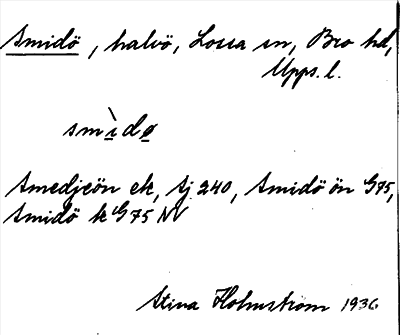 Smidö, halvö, Lossa sn, Bro hd,
Upps. l.
smìdø
Smedjeön ek, Aj 240, Smidö ön G75,
Smidö k G75 NV
Stina Holmström 1936